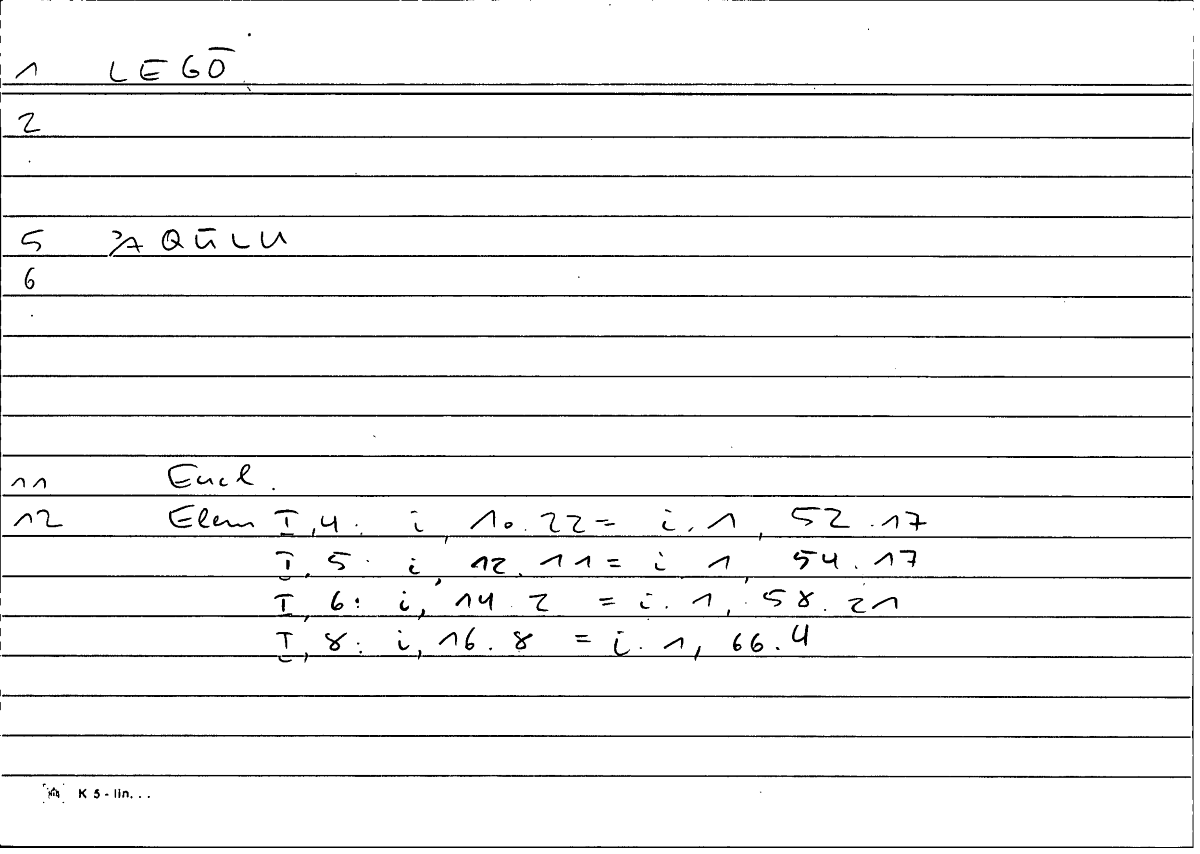 1 LEGŌ
2
.
5 ʾAQŪLU
6
.
11 Eucl.
12 Elem I,4: i, 10.22 = i.1, 52.17
I,5: i, 12.11 = i 1, 54.17
I,6: i, 14.2 = i.1, 58.21
I,8: i, 16.8 = i.1, 66.4
K 5 - lin. . .